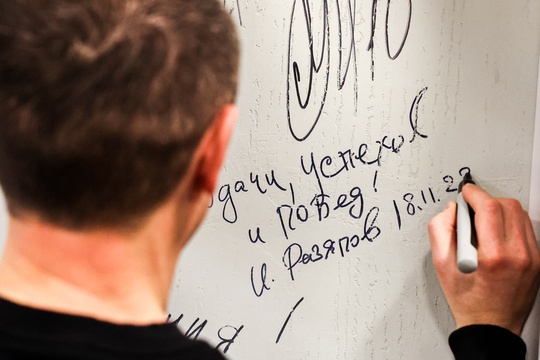 дачи, успехов
и побед!
И. Разяпов 18.11.22
ия